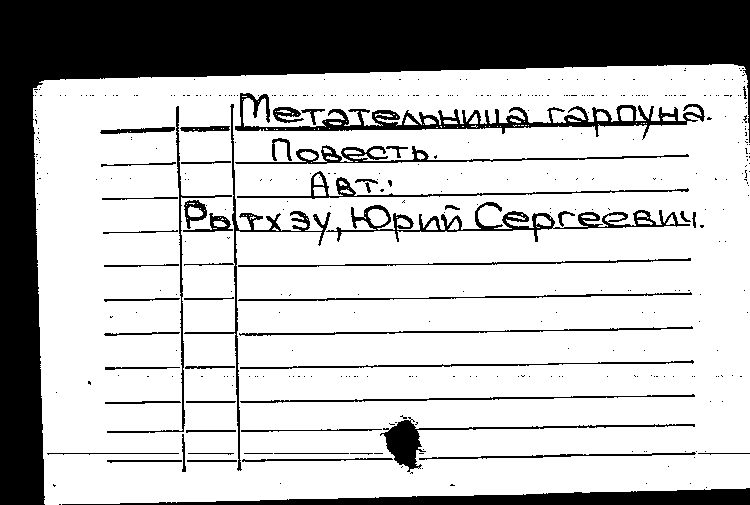 Метательница гарпуна.
Повесть.
Авт.:
Рытхэу, Юрий Сергеевич.